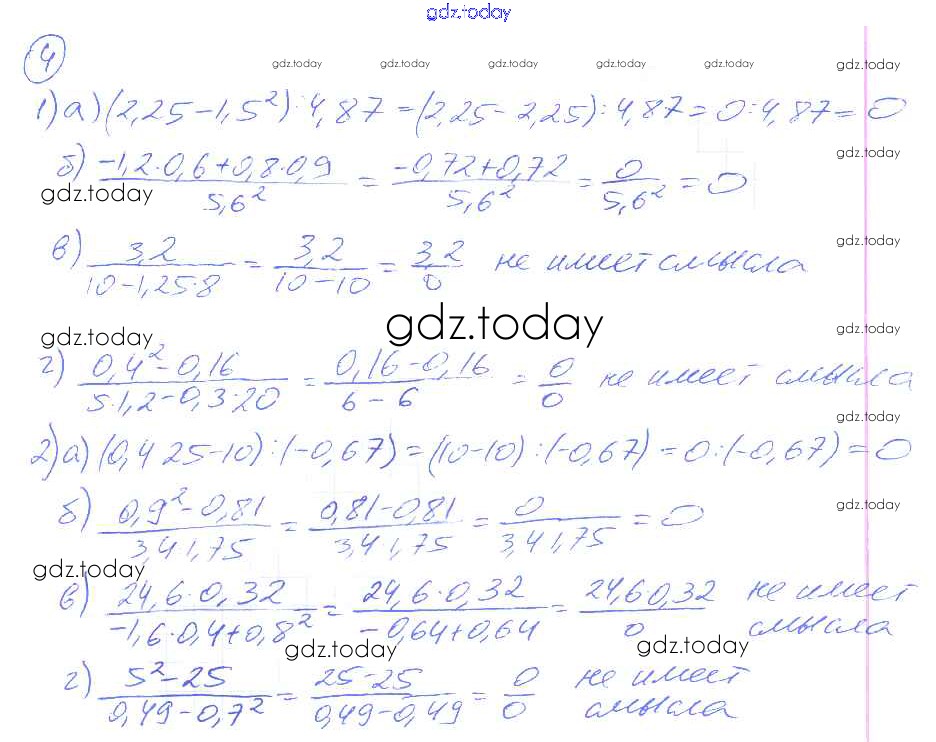 gdz.today
4
gdz.today gdz.today gdz.today gdz.today gdz.today gdz.today
1) а) (2,25 - 1,5²) : 4,87 = (2,25 - 2,25) : 4,87 = 0 : 4,87 = 0
gdz.today
б) (-1,2·0,6+0,8·0,9)/5,6² = (-0,72+0,72)/5,6² = 0/5,6² = 0
gdz.today
gdz.today
в) 3,2/(10-1,25·8) = 3,2/(10-10) = 3,2/0 не имеет смысла
gdz.today
gdz.today gdz.today
г) (0,4²-0,16)/(5·1,2-0,3·20) = (0,16-0,16)/(6-6) = 0/0 не имеет смысла
gdz.today
2) а) (0,4 25-10) : (-0,67) = (10-10) : (-0,67) = 0 : (-0,67) = 0
б) (0,9²-0,81)/(3,4 1,75) = (0,81-0,81)/(3,4 1,75) = 0/(3,4 1,75) = 0
gdz.today
gdz.today
в) (24,6·0,32)/(-1,6·0,4+0,8²) = (24,6·0,32)/(-0,64+0,64) = (24,6 0,32)/0 не имеет
смысла
gdz.today gdz.today
г) (5²-25)/(0,49-0,7²) = (25-25)/(0,49-0,49) = 0/0 не имеет
смысла